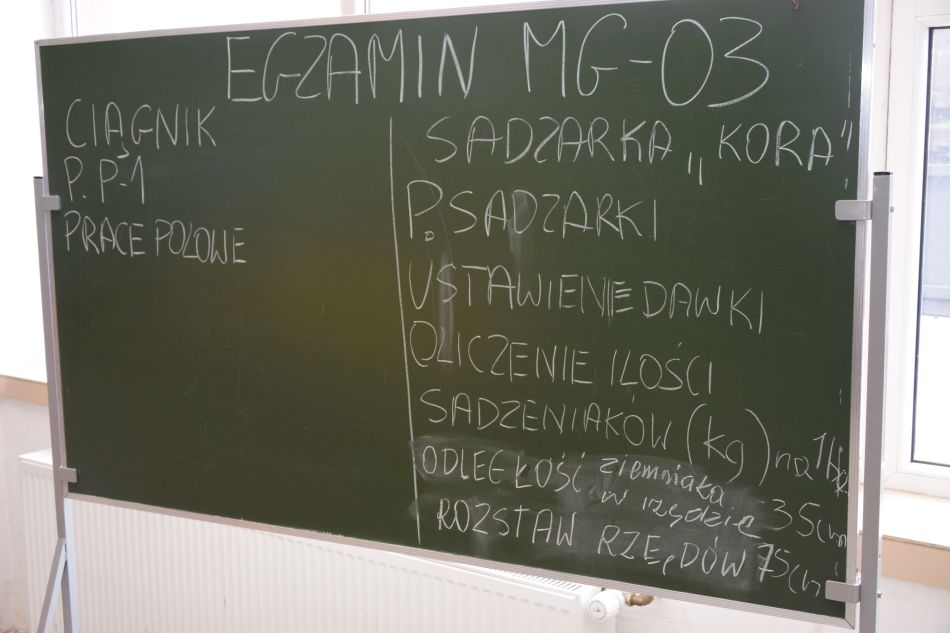 EGZAMIN MG-03
CIĄGNIK
P. P-1
PRACE POLOWE
SADZARKA „KORA”
P. SADZARKI
USTAWIENIE DAWKI
OLICZENIE ILOŚCI
SADZENIAKÓW (kg) na 1 ha
ODLEGŁOŚĆ ziemniaka
w rzędzie 35cm
ROZSTAW RZĘDÓW 75cm